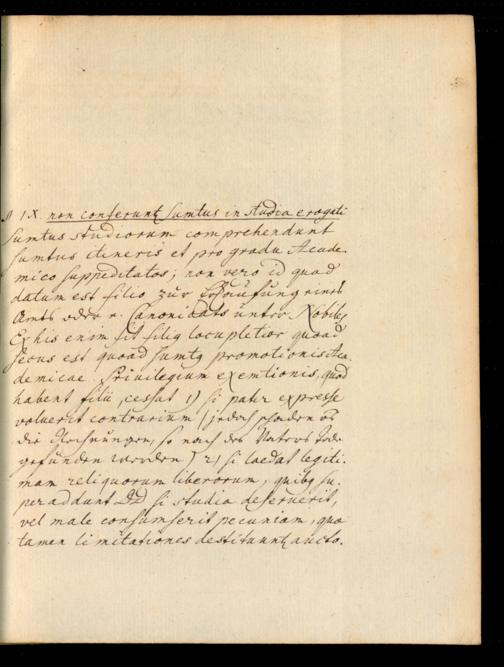 IX non conferunt sumtus in studia erogati
sumtus studiorum comprehendunt
sumtus itineris et pro gradu Acade-
mico suppeditatos; non vero id quod
datum est filio zur eines
Amts oder e. Canonicats unter Nobiles
Ex his enim fit filig locupletior quod
secus est quoad sumtg promotionis Aca-
demicae. Privilegium exemtionis, quod
habent filii, cessat 1) si pater expresse
voluerit contrarium (jedoch schaden
die Rechnungen, so nach des Vaters Tode
gefunden werden) 2) si laedat legiti-
mam reliquorum liberorum, quibg su-
peraddunt DD si studia deseruerit,
vel male consumserit pecuniam, qua
tamen limitationes destituunt aucto-